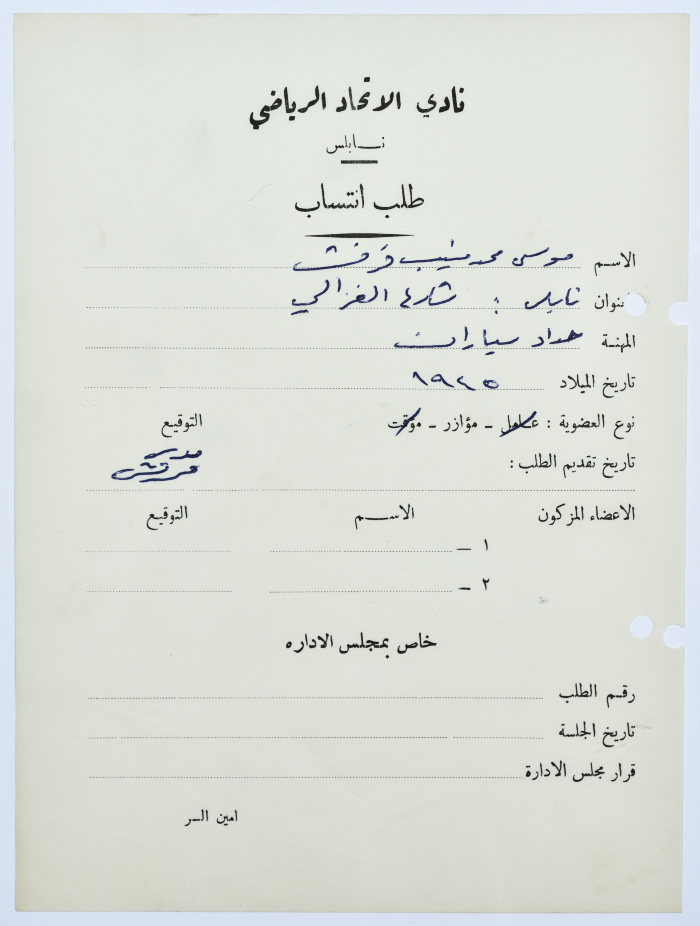 نادي الاتحاد الرياضي
نابلس
طلب انتساب
الاسم موسى محمد منيب قرقش
العنوان نابلس : شارع الغزالي
المهنة حداد سيارات
تاريخ الميلاد ١٩٤٥
نوع العضوية : عامل - مؤازر - موقت التوقيع
تاريخ تقديم الطلب :
الاعضاء المزكون الاسم التوقيع
١ -
٢ -
خاص بمجلس الاداره
رقم الطلب
تاريخ الجلسة
قرار مجلس الادارة
امين السر